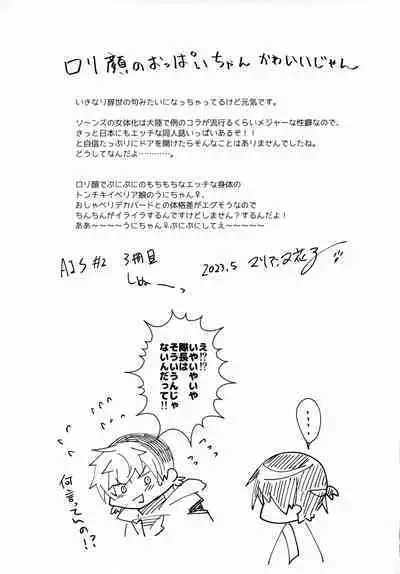 ロリ顔のおっぱいちゃん かわいいじゃん
いきなり辞世の句みたいになっちゃってるけど元気です。
ソーンズの女体化は大陸で例のコラが流行るくらいメジャーな性癖なので、
きっと日本にもエッチな同人誌いっぱいあるぞ！！
と自信たっぷりにドアを開けたらそんなことはありませんでしたね。
どうしてなんだよ…………。
ロリ顔でぷにぷにのもちもちなエッチな身体の
トンチキイベリア娘のうにちゃん♀、
おしゃべりデカバードとの体格差がエグそうなので
ちんちんがイライラするんですけどしません？するんだよ！
ああ～～～～うにちゃん♀ぷにぷにしてえ～～～～～
AJS #2 3冊目
2023.5
え!?!?
いやいやいや
隊長は
そういうんじゃ
ないんだって!!
‥‥‥
何言ってんの!?